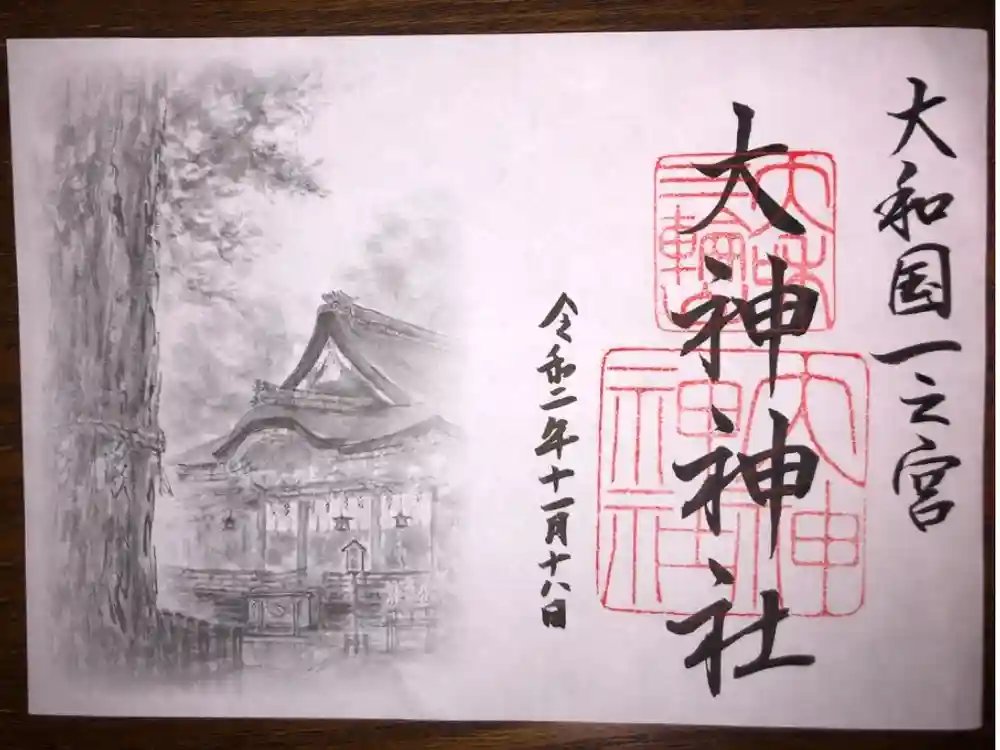 大和国一之宮
大神神社
令和二年十一月十八日
大神
神社